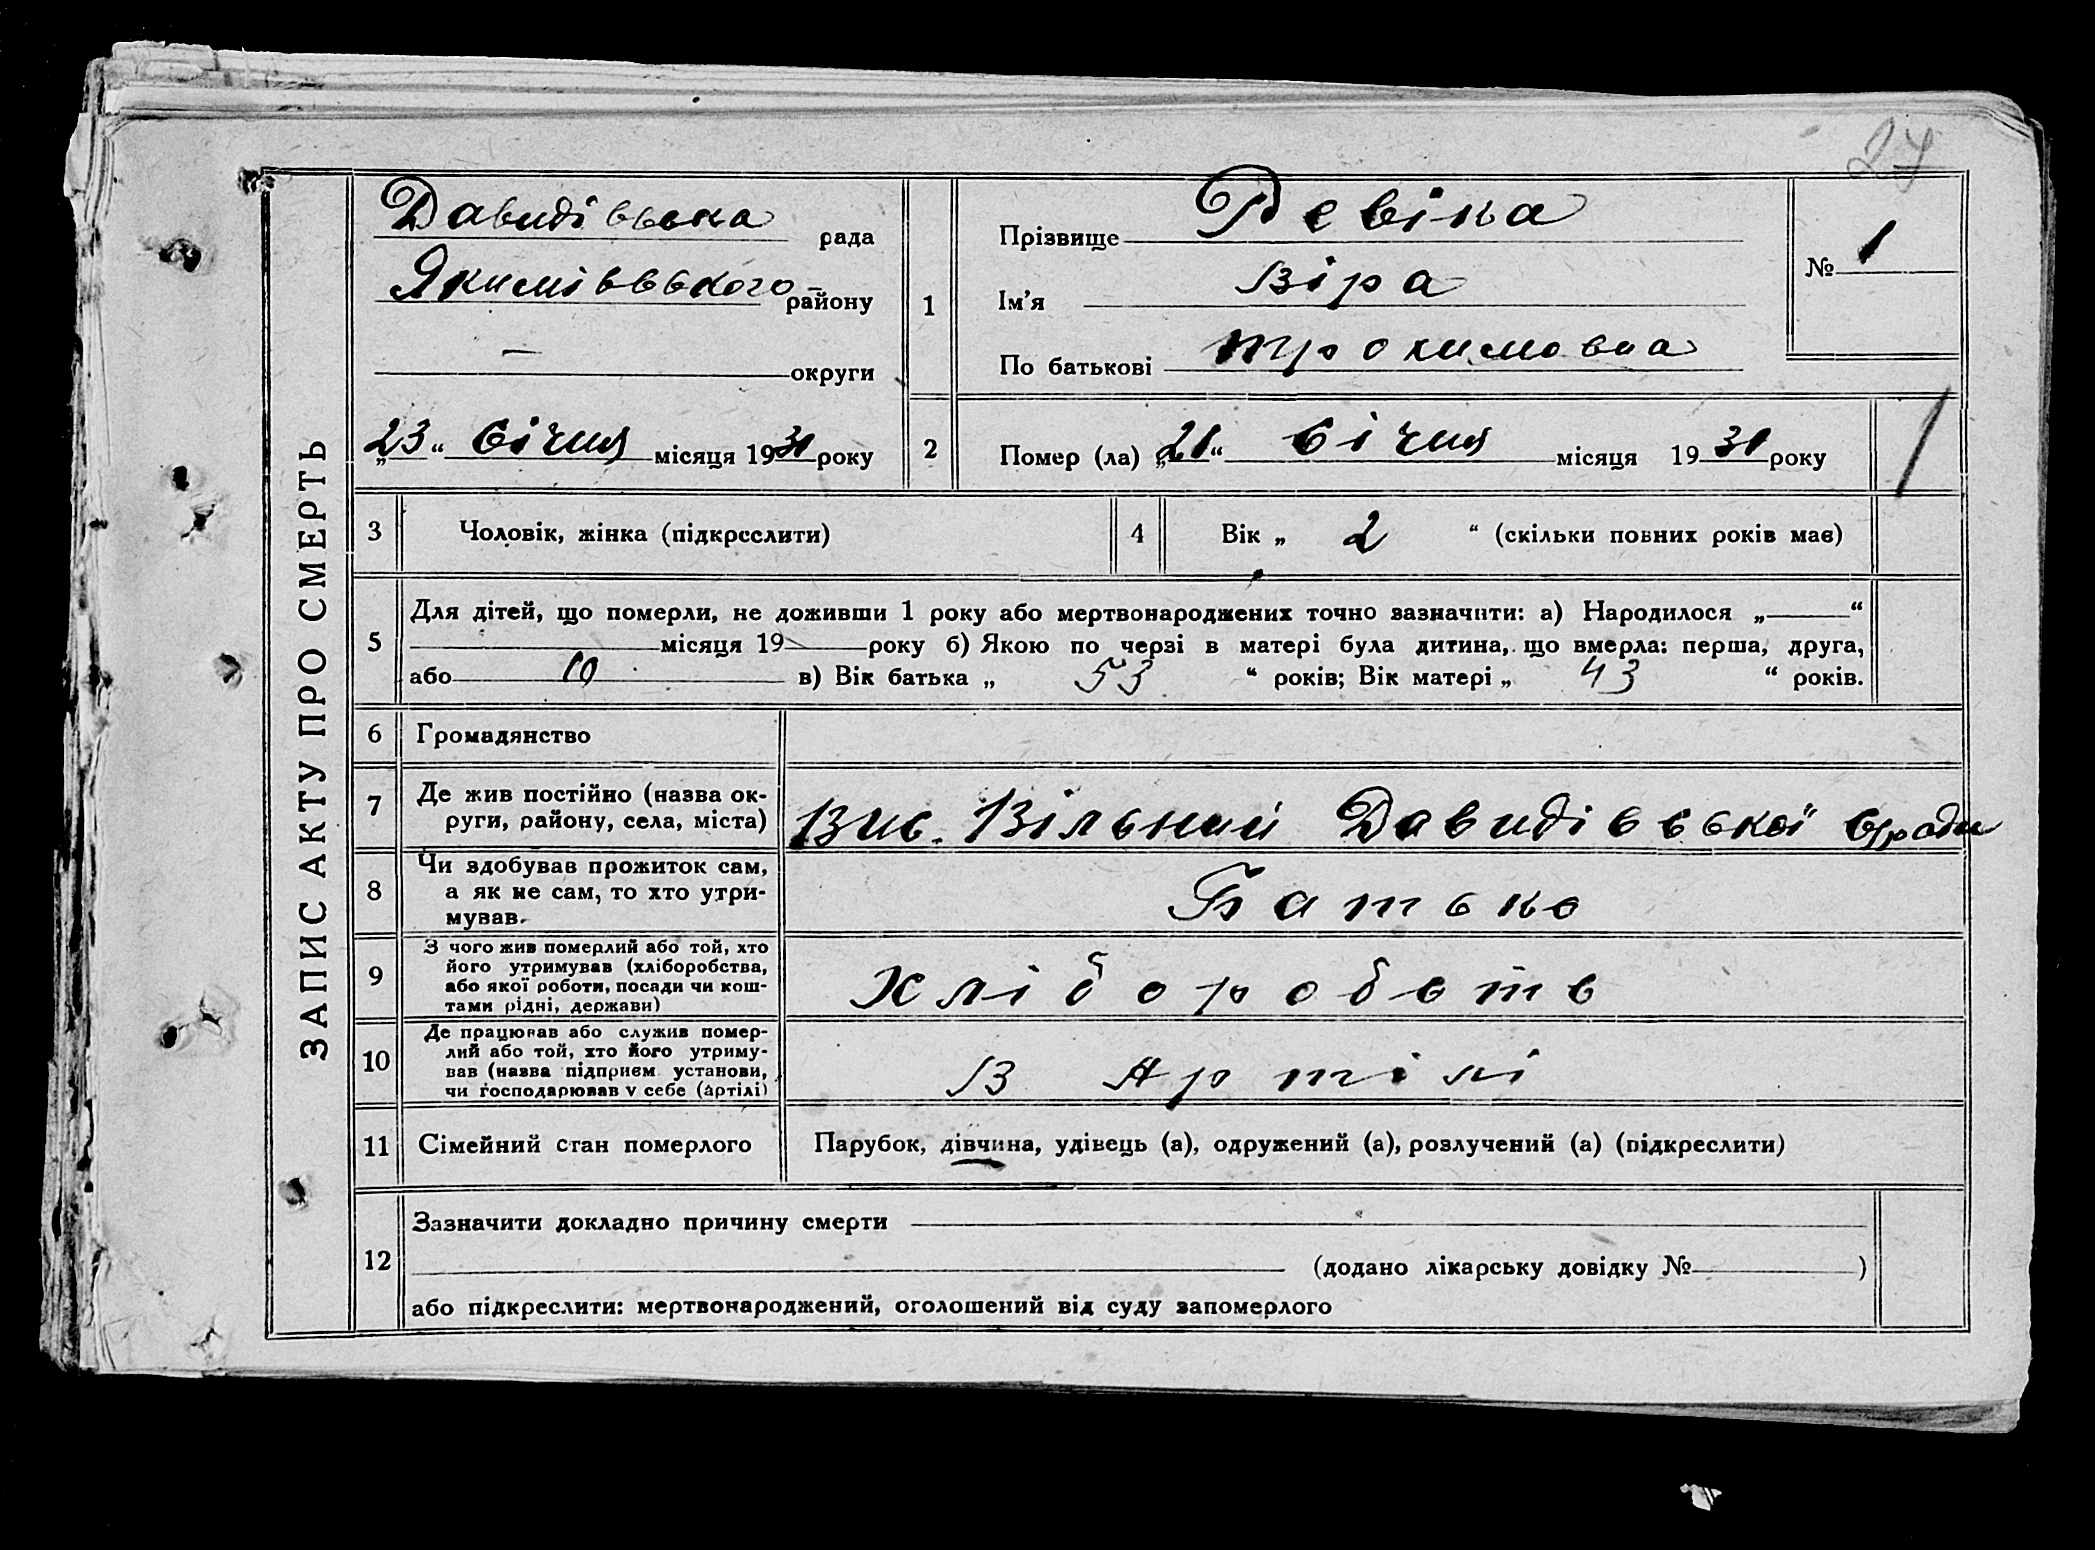 27
ЗАПИС АКТУ ПРО СМЕРТЬ
Давидівська рада
Якимівського району
— округи
„23“ січня місяця 1931 року
1
Прізвище Ревіка
Ім’я Віра
По батькові Трохимовна
№ 1
2
Помер (ла) „21“ січня місяця 1931 року
1
3 Чоловік, жінка (підкреслити)
4 Вік „ 2 “ (скільки повних років має)
5
Для дітей, що померли, не доживши 1 року або мертвонароджених точно зазначити: а) Народилося „—“
місяця 19 року б) Якою по черзі в матері була дитина, що вмерла: перша, друга,
або 10 в) Вік батька „ 53 “ років; Вік матері „ 43 “ років.
6 Громадянство
7 Де жив постійно (назва ок-
руги, району, села, міста)
Вис. Вільний Давидівської с/ради
8 Чи здобував прожиток сам,
а як не сам, то хто утри-
мував.
Батько
9 З чого жив померлий або той, хто
його утримував (хліборобства,
або якої роботи, посади чи кош-
тами рідні, держави)
Хліборобств
10 Де працював або служив помер-
лий або той, хто його утриму-
вав (назва підприєм установи,
чи господарював у себе (артілі)
В Артілі
11 Сімейний стан померлого
Парубок, дівчина, удівець (а), одружений (а), розлучений (а) (підкреслити)
12
Зазначити докладно причину смерти
(додано лікарську довідку № )
або підкреслити: мертвонароджений, оголошений від суду запомерлого